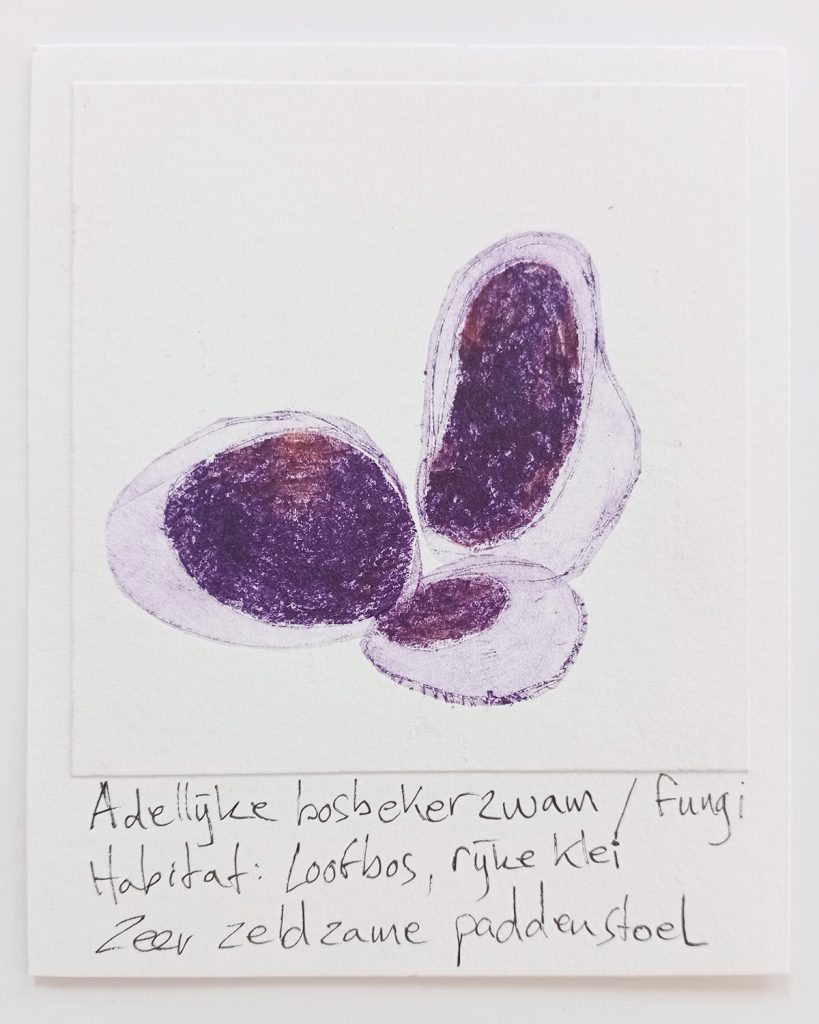 Adellijke bosbekerzwam / fungi
Habitat: Loofbos, rijke klei
Zeer zeldzame paddenstoel